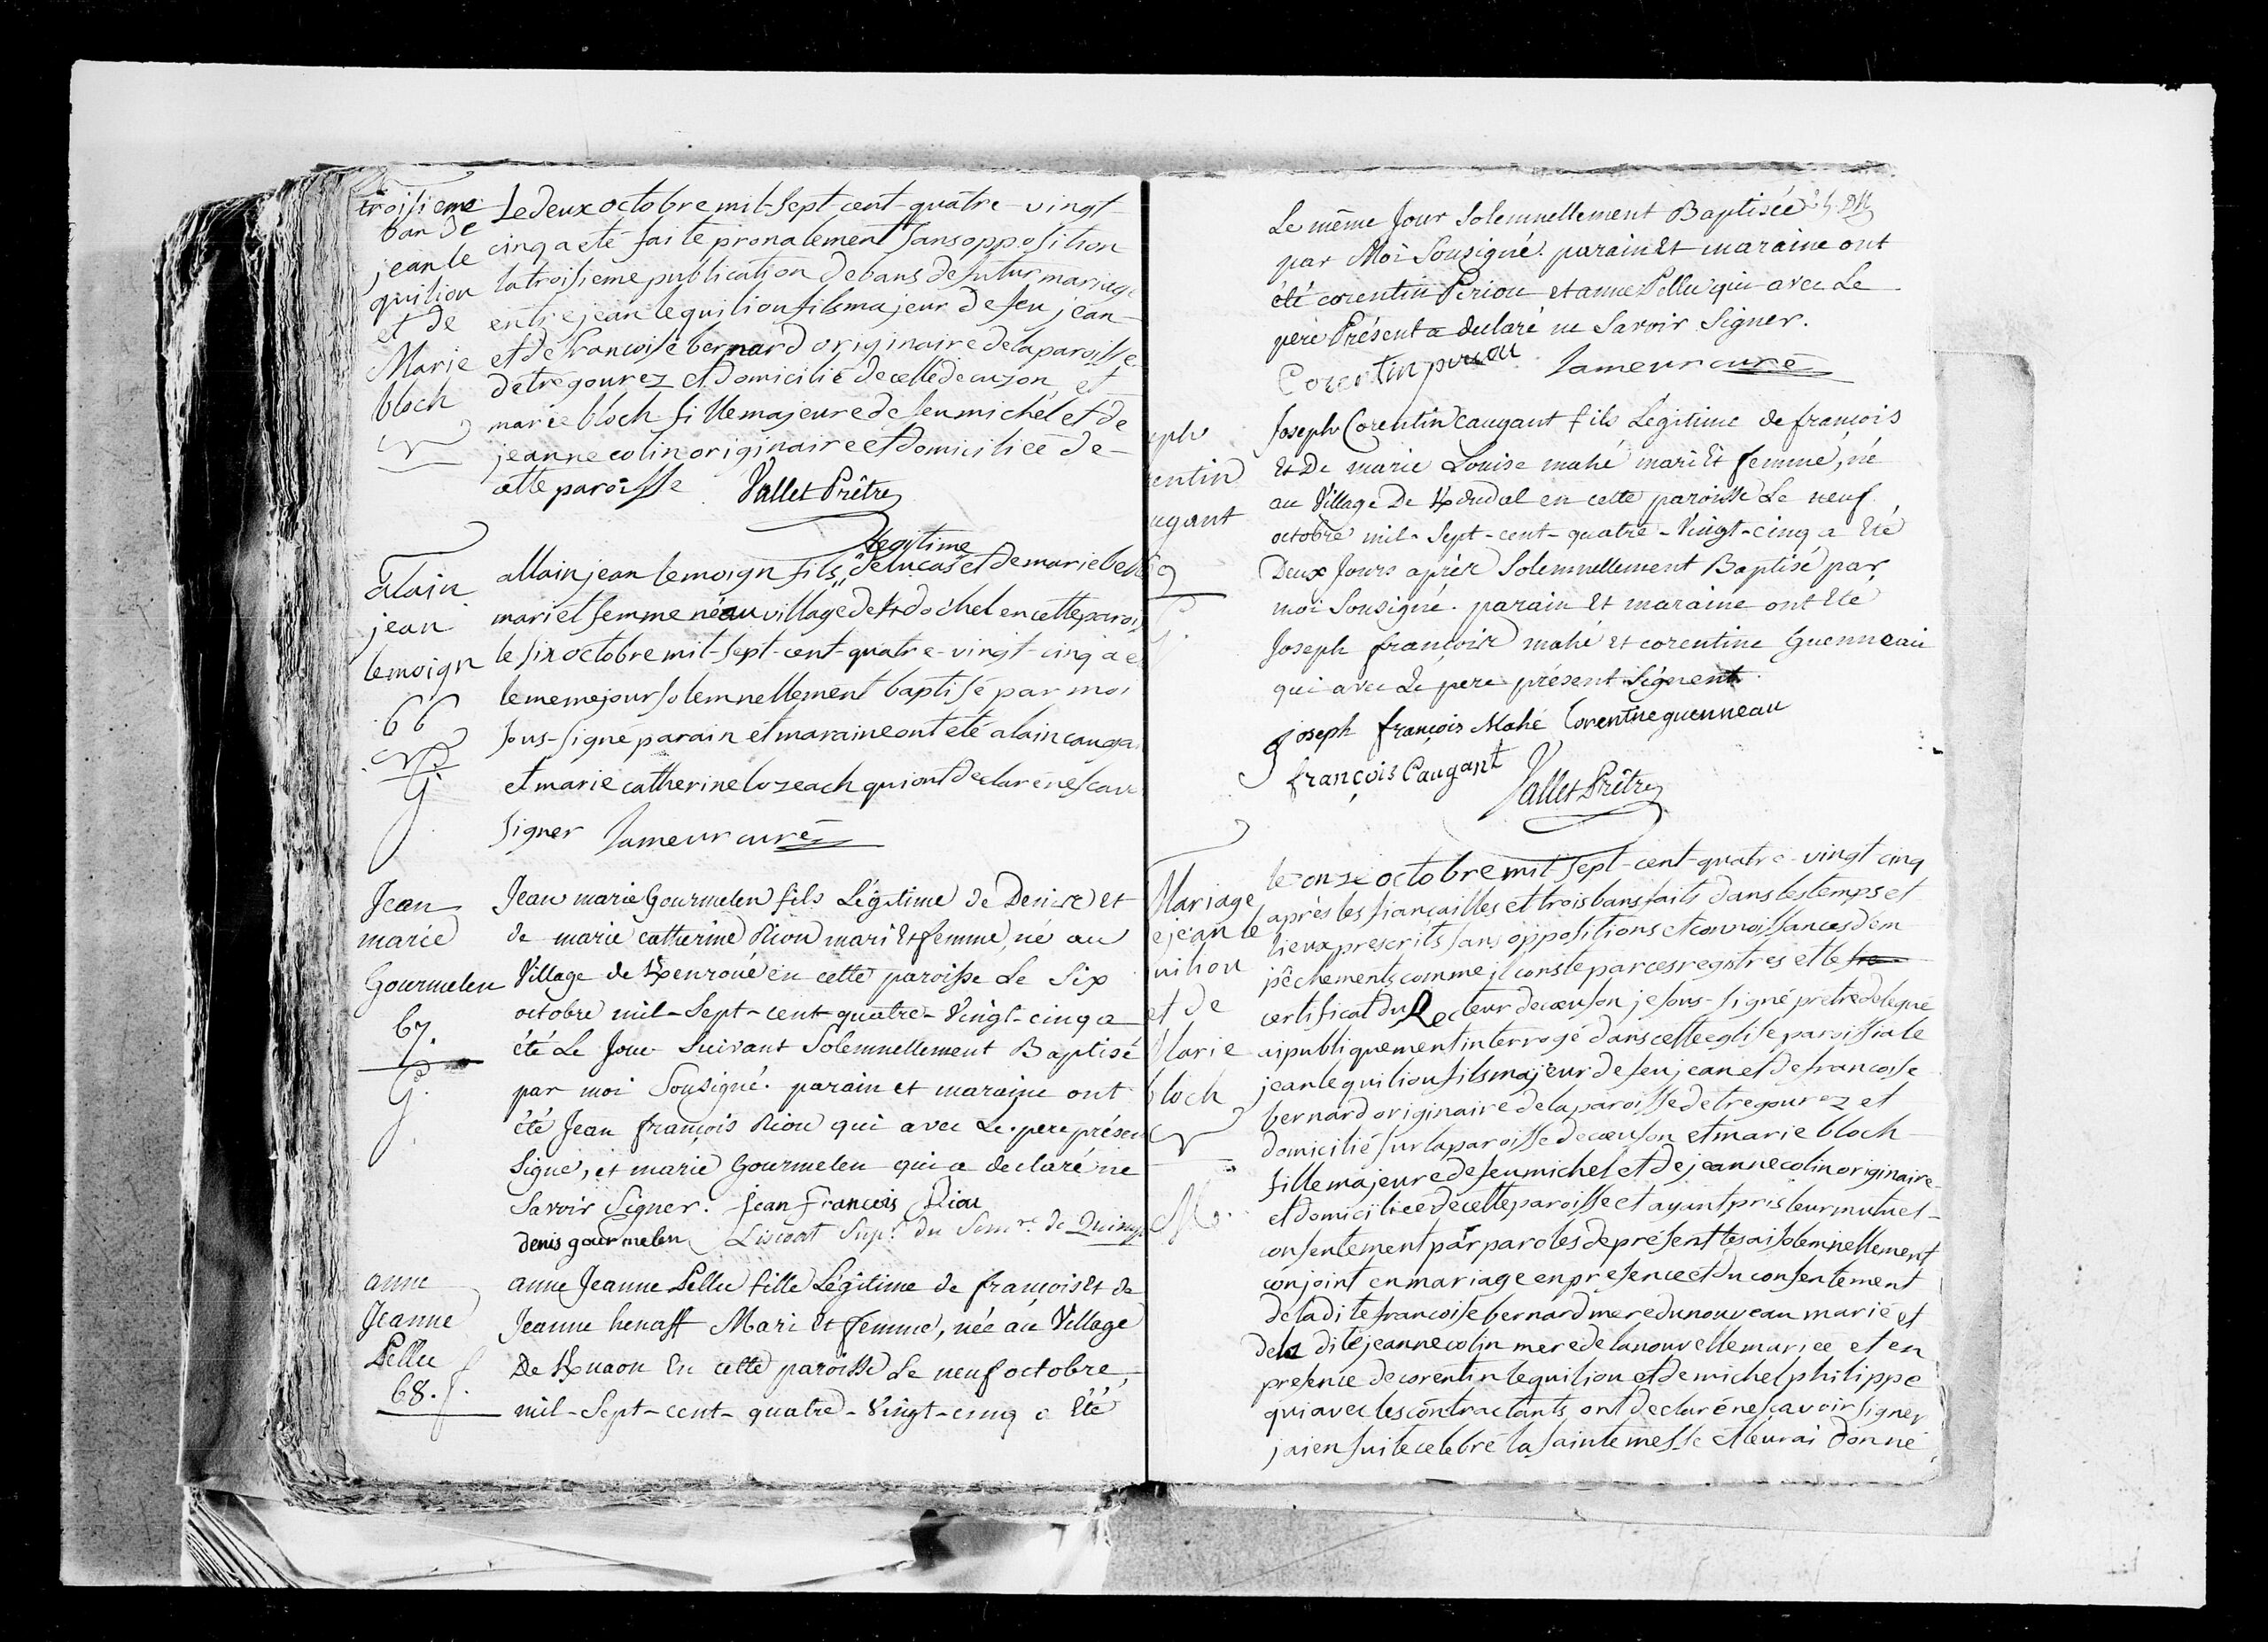 troisieme
ban de
jean le
quiliou
et de
Marie
bloch
Le deux octobre mil-sept-cent-quatre-vingt-
cinq a eté faite pronalement sans opposition
la troisieme publication de bans de futur mariage
entre jean le quiliou fils majeur de feu jean
et de francoise bernard originaire de la paroisse
de trégourez et domicilié de celle de cuzon et
marie bloch fille majeure de feu michel et de
jeanne colin originaire et domiciliée de-
cette paroisse Vallet Prêtre
alain
jean
lemoign
66
G.
legitime
allain jean lemoign fils de lucas et de marie
mari et femme né au village de Kdochel en cette
le six octobre mil-sept-cent-quatre-vingt-cinq a
le meme jour solemnellement baptisé par moi
sous-signé parain et maraine ont été alain
et marie catherine lozeach qui ont declaré ne
signer Lameur curé
Jean
marie
Gourmelen
67.
G.
Jean marie Gourmelen fils Légitime de Denis et
de marie catherine Riou mari et femme, né au
Village de Kenroué en cette paroisse Le Six
octobre mil-Sept-cent-quatre-Vingt-cinq a
été Le Jour Suivant Solemnellement Baptisé
par moi Sousigné. parain et maraine ont
été Jean françois Riou qui avec Le pere
Signe, et marie Gourmelen qui a declaré ne
Savoir Signer. Jean François Riou
denis gourmelen Liscoat Sup.r du Sem.re de
anne
Jeanne
Pellu
68. f.
anne Jeanne Pellu fille Légitime de françois et de
Jeanne henaff Mari et femme, née au Village
De Knaou En cette paroisse Le neuf octobre,
mil-Sept-cent-quatre-Vingt-cinq a Eté
Le même Jour Solemnellement Baptisée
par Moi Sousigné. parain Et maraine ont
été corentin Periou et anne Pellu qui avec Le
pere Présent a declaré ne Savoir Signer.
Corentin periou Lameur curé
eph
entin
ugant
69
G.
Joseph Corentin Caugant fils Légitime de françois
Et De marie Louise mahé mari Et femme, né
au Village De Kdudal en cette paroisse Le neuf
octobre mil-Sept-cent-quatre-Vingt-cinq a Eté
Deux Jours après Solemnellement Baptisé par
moi Sousigné. parain Et maraine ont Eté
Joseph françois mahé et corentine Guenneau
qui avec Le pere présent Signent.
joseph françois Mahé Corentine guenneau
françois Caugant Vallet Prêtre
Mariage
e jean le
uiliou
et de
Marie
bloch
M.
le onze octobre mil sept-cent-quatre-vingt cinq
après les fiançailles et trois bans faits dans les temps et
lieux prescrits sans oppositions et connoissances dem
pêchements comme il conste par ces registres et le
certificat du Recteur de cœuson je sous-signé prêtre delegué
ai publiquement interrogé dans cette eglise paroissiale
jean le quiliou fils majeur de feu jean et de francoise
bernard originaire de la paroisse de tregourez et
domicilié sur la paroisse de cœuson et marie bloch
fille majeure de feu michel et de jeanne colin originaire
et domiciliée de cette paroisse et ayant pris leur mutuel-
consentement par paroles de présent les ai solemnellement
conjoint en mariage en presence et du consentement
de la dite francoise bernard mere du nouveau marié et
de la dite jeanne colin mere de la nouvelle mariée et en
presence de corentin le quiliou et de michel philippe
qui avec les contractants ont declaré ne sçavoir signer
jai en suite celebré la sainte messe et leur ai donné